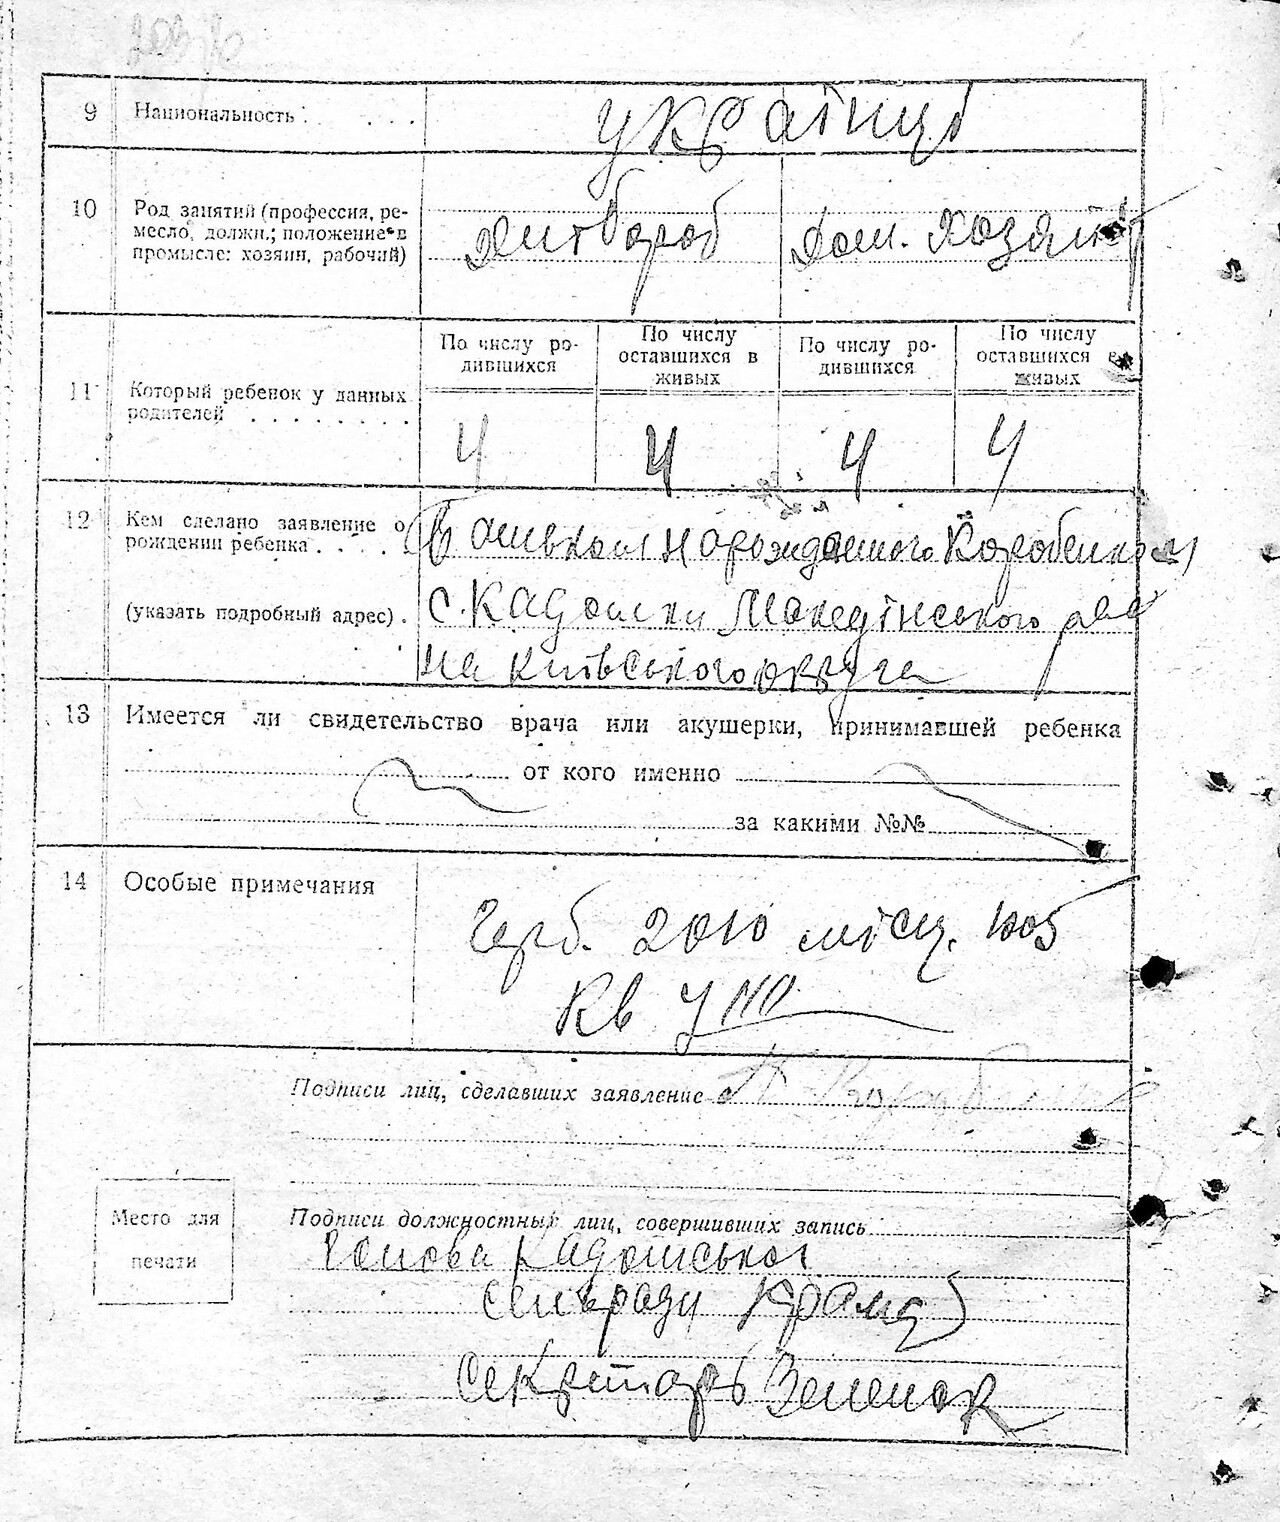 9 Национальность . . . .
українці
10 Род занятий (профессия, ре-
месло, должн.; положение в
промысле: хозяин, рабочий)
хлібороб Дом. хозяйк
По числу ро-
дившихся
По числу
оставшихся в
живых
По числу ро-
дившихся
По числу
оставшихся в
живых
11 Который ребенок у данных
родителей . . . . . . . .
4 4 4 4
12 Кем сделано заявление о
рождении ребенка . . . .
Батьком народженного Коробенком
(указать подробный адрес) .
с. Кадомки Македінського рай
на Київського округа
13 Имеется ли свидетельство врача или акушерки, принимавшей ребенка
от кого именно
за какими №№
14 Особые примечания
Герб. 2010 місц.
Кв
Подписи лиц, сделавших заявление
Место для
печати
Подписи должностных лиц, совершивших запись
Голова Кадомської
сельради
Секретарь Зеленок